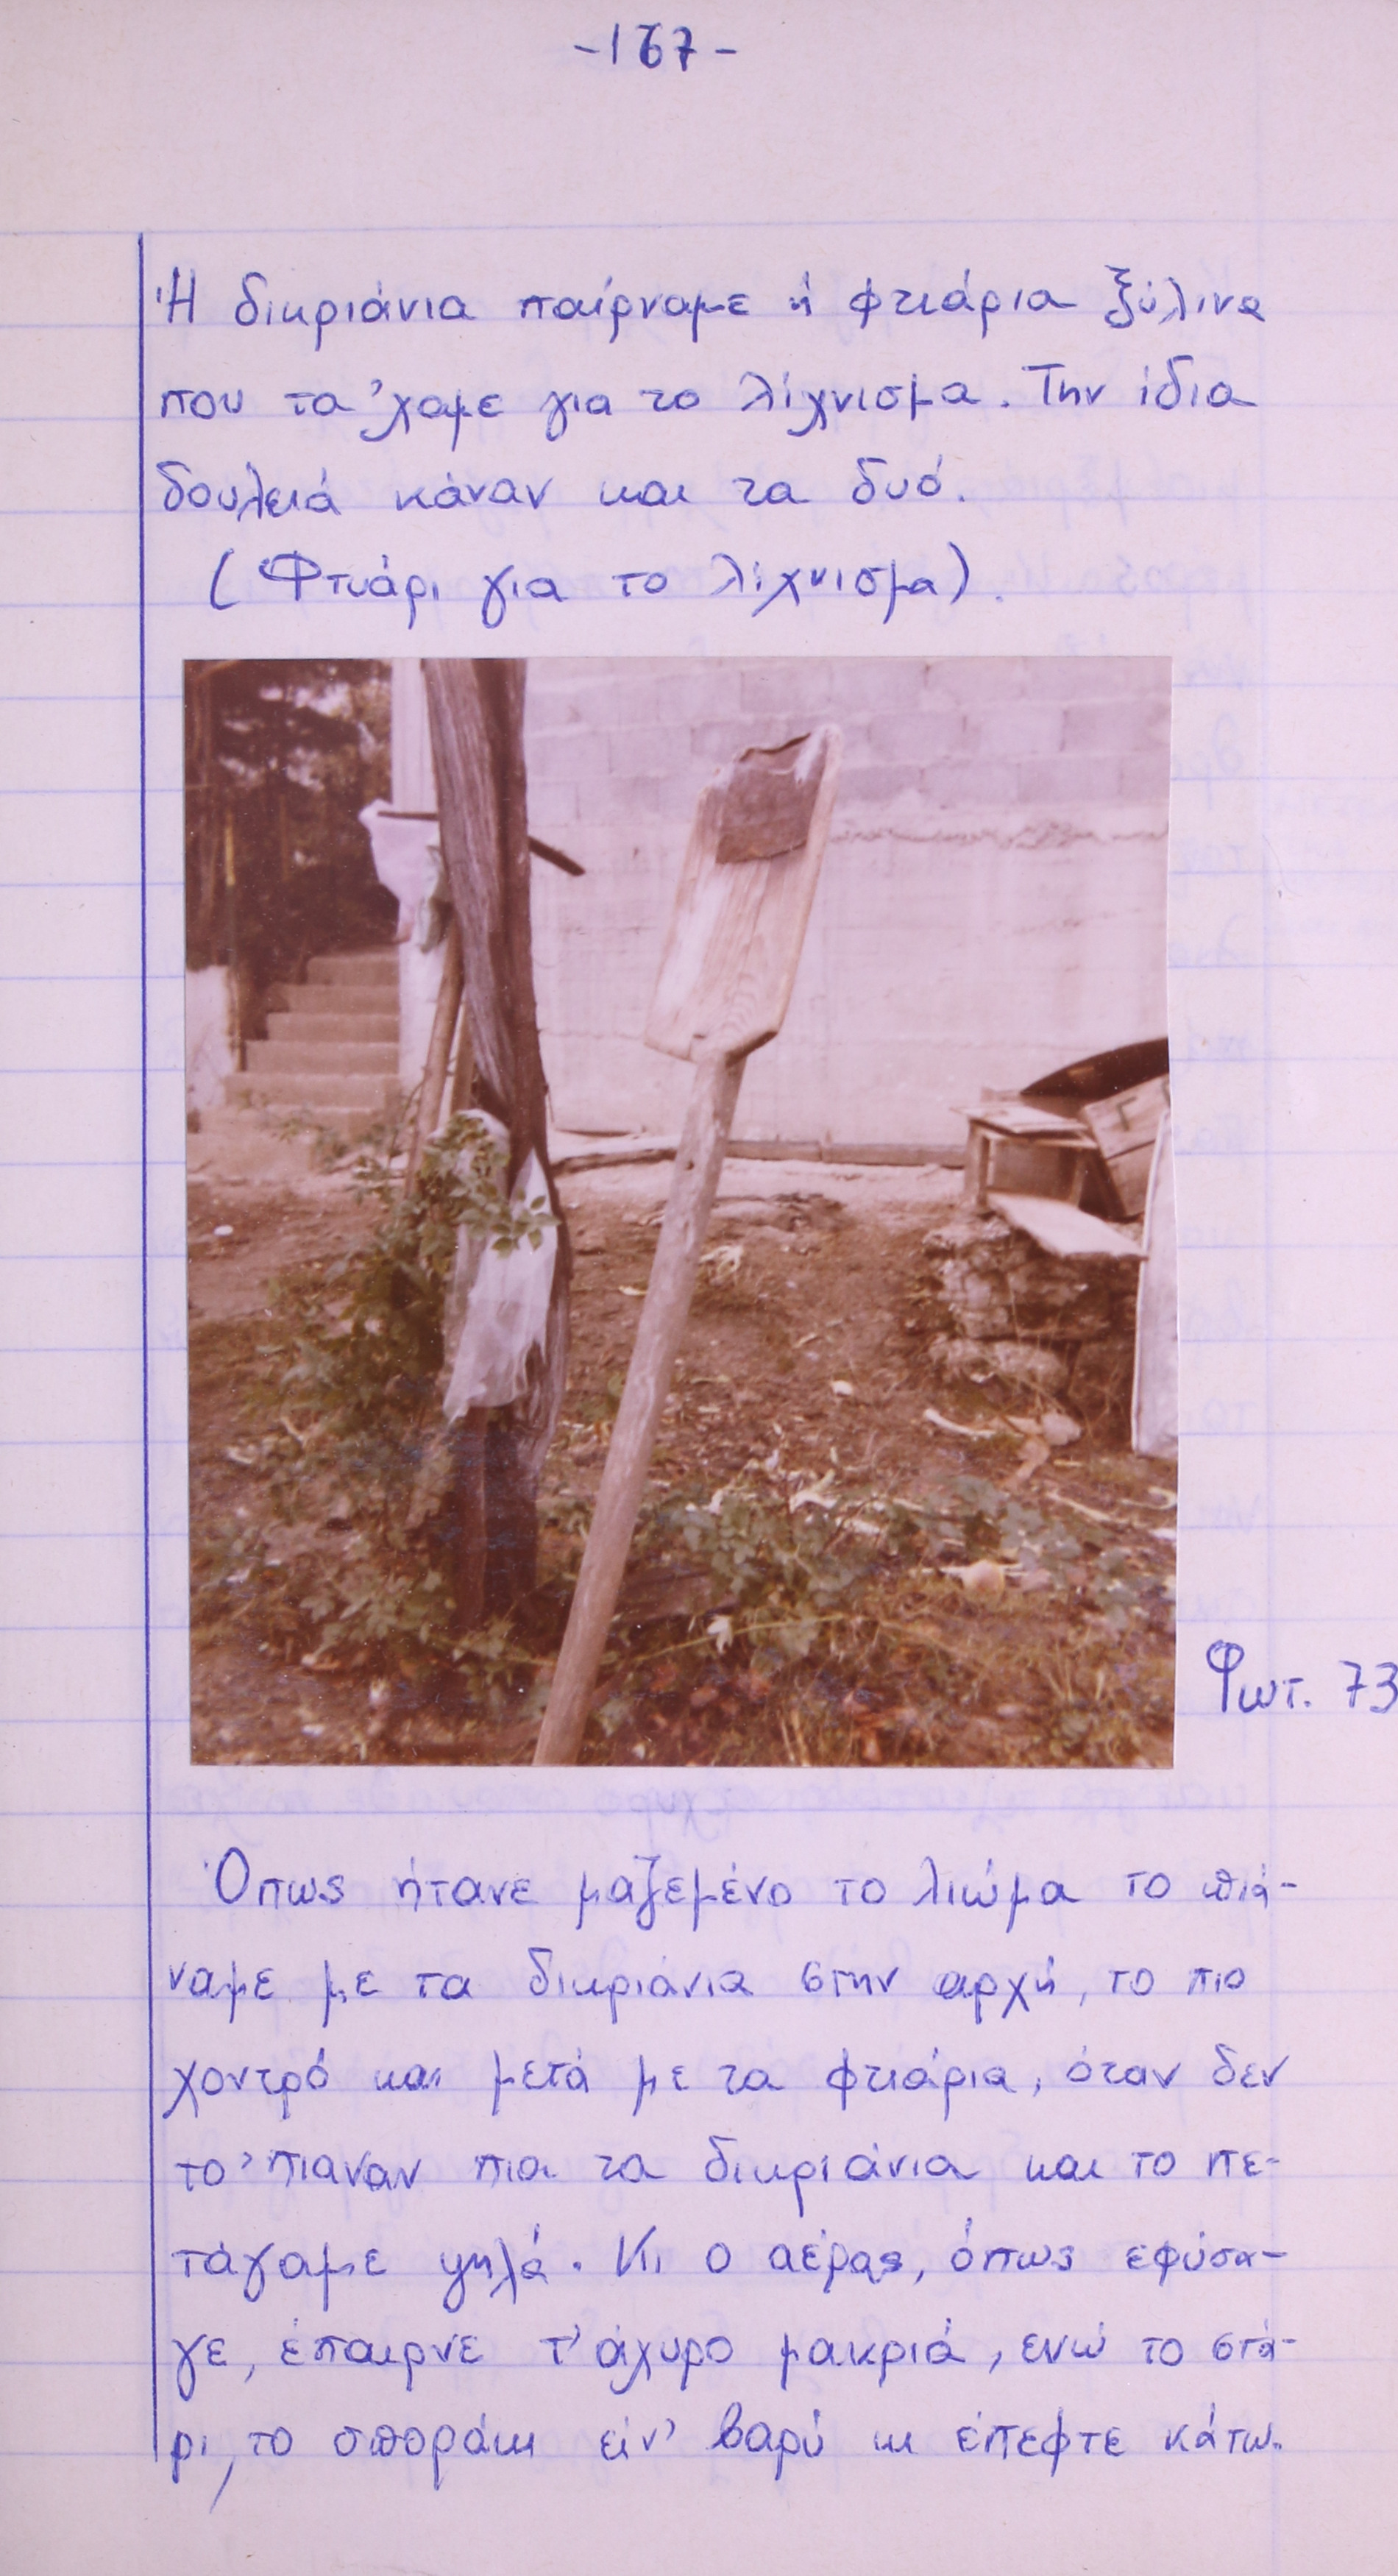 -167-
Ή δικριάνια παίρναμε ή φτιάρια ξύλινα
που τα 'χαμε για το λίχνισμα. Την ίδια
δουλειά κάναν και τα δυό.
(Φτυάρι για το λίχνισμα).
Φωτ. 73
Όπως ήτανε μαζεμένο το λιώμα το πιά-
ναμε με τα δικριάνια στην αρχή, το πιο
χοντρό και μετά με τα φτιάρια, όταν δεν
το 'πιαναν πια τα δικριάνια και το πε-
τάγαμε ψηλά. Κι ο αέρας, όπως εφύσα-
γε, έπαιρνε τ' άχυρο μακριά, ενώ το στά-
ρι, το σποράκι είν' βαρύ κι έπεφτε κάτω.